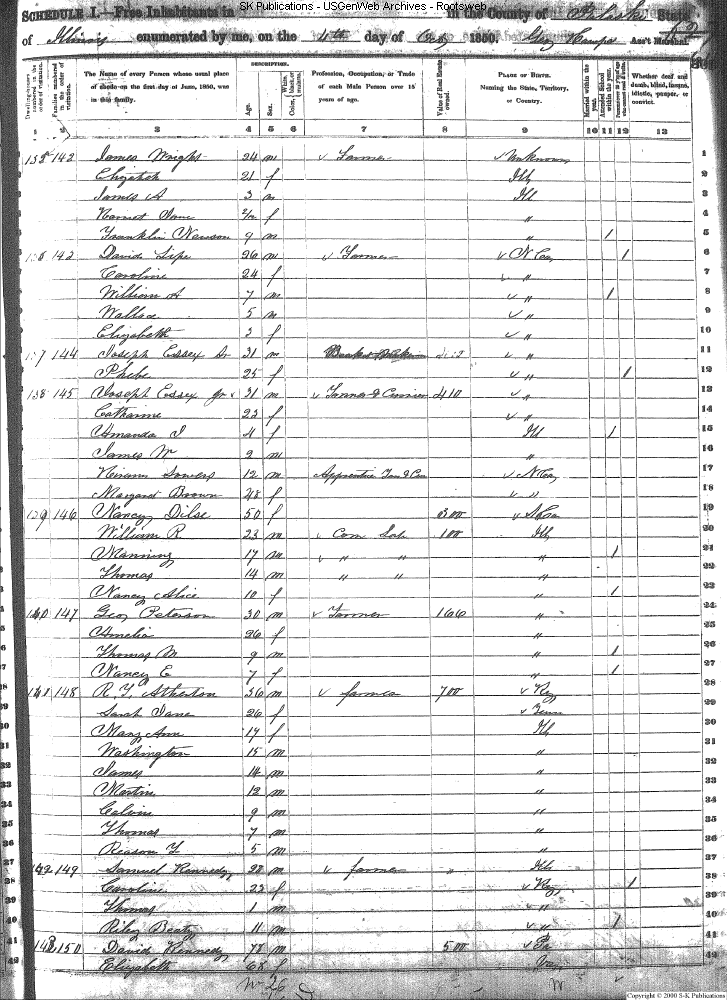 SK Publications - USGenWeb Archives - Rootsweb
SCHEDULE I.—Free Inhabitants in in the County of Pulaski State
of Illinois enumerated by me, on the 4th day of Octr 1850. Ass't Marshal.
DESCRIPTION.
Dwelling-houses numbered in the order of visitation. Families numbered in the order of visitation. The Name of every Person whose usual place of abode on the first day of June, 1850, was in this family. Age. Sex. Color, White, black, or mulatto. Profession, Occupation, or Trade of each Male Person over 15 years of age. Value of Real Estate owned. PLACE OF BIRTH. Naming the State, Territory, or Country. Married within the year. Attended School within the year. Whether deaf and dumb, blind, insane, idiotic, pauper, or convict.
1 2 3 4 5 6 7 8 9 10 11 12 13
135 142 James Wright 24 m Farmer Unknown 1
Elizabeth 21 f Ill 2
James A 3 m Ill 3
Harriet Jane 2/12 f " 4
Franklin 9 m " 5
143 David Lipe 26 m Farmer N Ca 6
Caroline 24 f " 7
William A 7 m " 8
Wallace 5 m " 9
Elizabeth 3 f " 10
137 144 Joseph Essex Sr 31 m " 11
Phebe 25 f " 12
138 145 Joseph Essex Jr 31 m Tanner & Currier 410 " 13
Catharine 23 f " 14
Amanda J 4 f Ill 15
James W 2 m " 16
Hiram Sowers 12 m Apprentice N Ca 17
Margaret Brown 48 f " 18
139 146 Nancy Dilse 50 f 300 19
William R 23 m Com Lab 100 Ill 20
Manning 17 m " " " 21
Thomas 14 m " " " 22
Nancy Alice 10 f " 23
140 147 Geo Peterson 30 m Farmer 166 " 24
Amelia 26 f " 25
Thomas M 9 m " 26
Nancy E 7 f " 27
141 148 R. Y. Atherton 36 m farmer 700 Ky 28
Sarah Jane 26 f Tenn 29
Mary Ann 17 f Ill 30
Washington 15 m " 31
James 14 m " 32
Martin 12 m " 33
Calvin 9 m " 34
Thomas 7 m " 35
Reason Y 5 m " 36
142 149 Samuel Kennedy 28 m farmer " Ill
Caroline 23 f Ky
Thomas 1 m "
Riley Beaty 11 m "
143 150 David Kennedy 78 m 500 Pa
Elizabeth 68 f
Copyright © 2000 S-K Publications